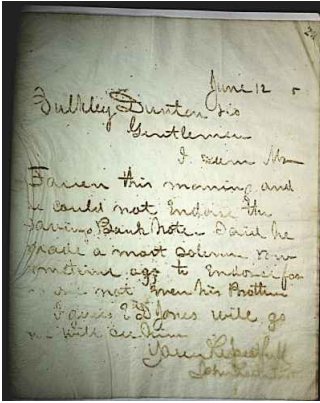 June 12
Bulkley Dunton
Gentlemen
I seen Mr
this morning and
he could not Endorse the
Savings Bank Note. Said he
made a most solemn vow
sometime ago to Endorse for
no one not Even his Brother
I guess E D Jones will go
will see him
Yours Respectfull
John